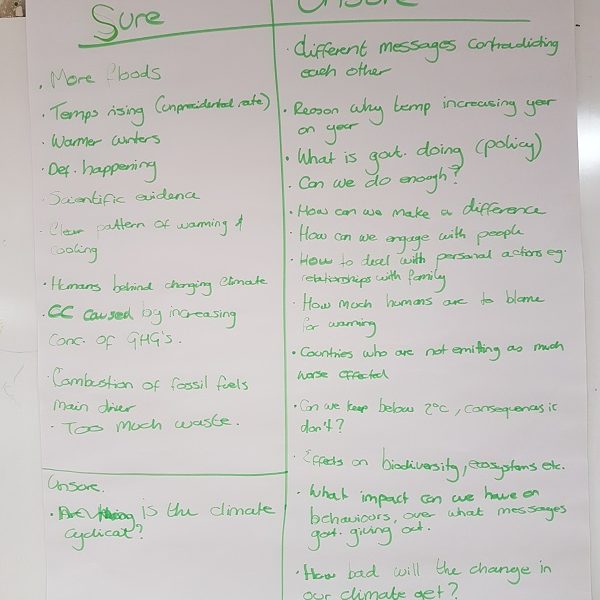 Sure
• More floods
• Temps rising (unprecidented rate)
• Warmer winters
• Def. happening
• Scientific evidence
• Clear pattern of warming &
cooling
• Humans behind changing climate
• CC caused by increasing
conc. of GHG's.
• Combustion of fossil fuels
main driver
• Too much waste.
Unsure.
• is the climate
cyclical?
Unsure
• different messages contradicting
each other
• Reason why temp increasing year
on year
• What is govt. doing (policy)
• Can we do enough?
• How can we make a difference
• How can we engage with people
• How to deal with personal actions eg.
relationships with family
• How much humans are to blame
for warming
• Countries who are not emitting as much
worse effected
• Can we keep below 2°C, consequences if
don't?
• Effects on biodiversity, ecosystems etc.
• What impact can we have on
behaviours, over what messages
govt. giving out.
• How bad will the change in
our climate get?